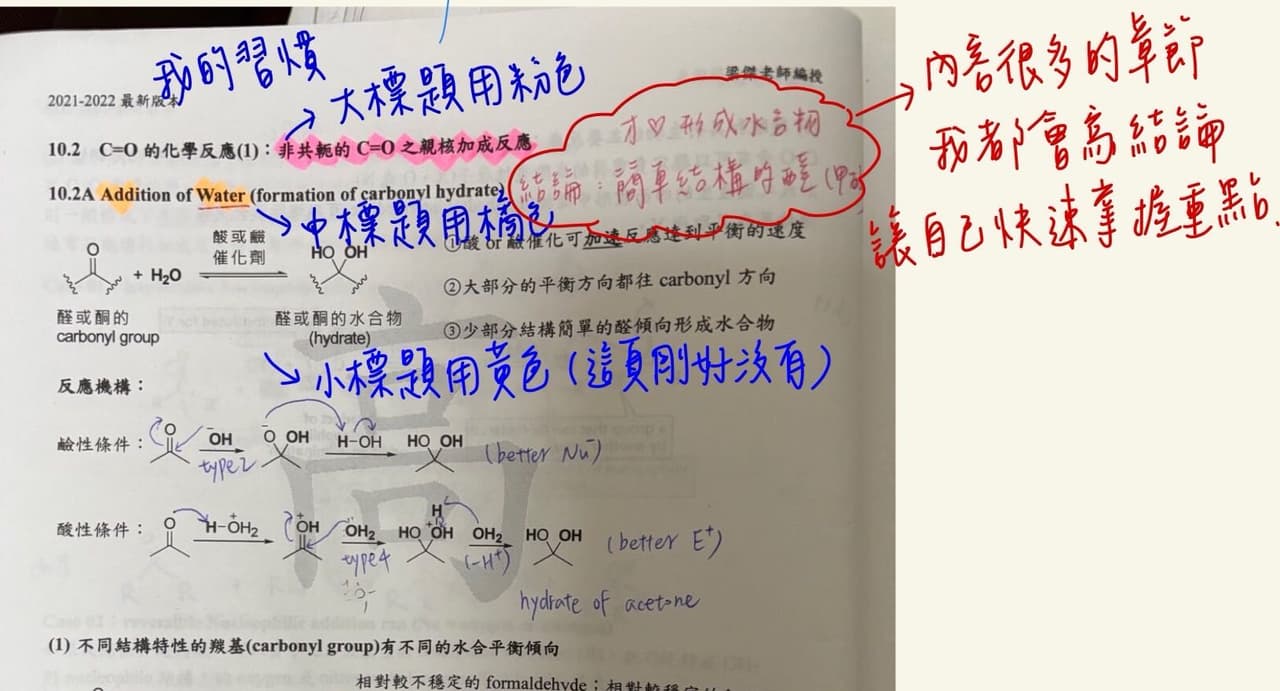 我的習慣
→ 大標題用粉色
2021-2022 最新版本
梁傑老師編授
10.2 C=O 的化學反應(1)：非共軛的 C=O 之親核加成反應
才♡形成水合物
結論：簡單結構的醛(甲
→ 內容很多的章節
我都會寫結論
讓自己快速掌握重點.
10.2A Addition of Water (formation of carbonyl hydrate)
→ 中標題用橘色
O
+ H₂O
酸或鹼
催化劑
HO OH
①酸 or 鹼催化可加速反應達到平衡的速度
②大部分的平衡方向都往 carbonyl 方向
③少部分結構簡單的醛傾向形成水合物
醛或酮的
carbonyl group
醛或酮的水合物
(hydrate)
→ 小標題用黃色(這頁剛好沒有)
反應機構：
鹼性條件： O ⁻OH O⁻ OH H-OH HO OH (better Nu⁻)
type2
酸性條件： O H-OH₂⁺ ⁺OH ÖH₂ HO ⁺OH H OH₂ HO OH (better E⁺)
type4 (-H⁺)
hydrate of acetone
高
(1) 不同結構特性的羰基(carbonyl group)有不同的水合平衡傾向
相對較不穩定的 formaldehyde；相對較穩定的